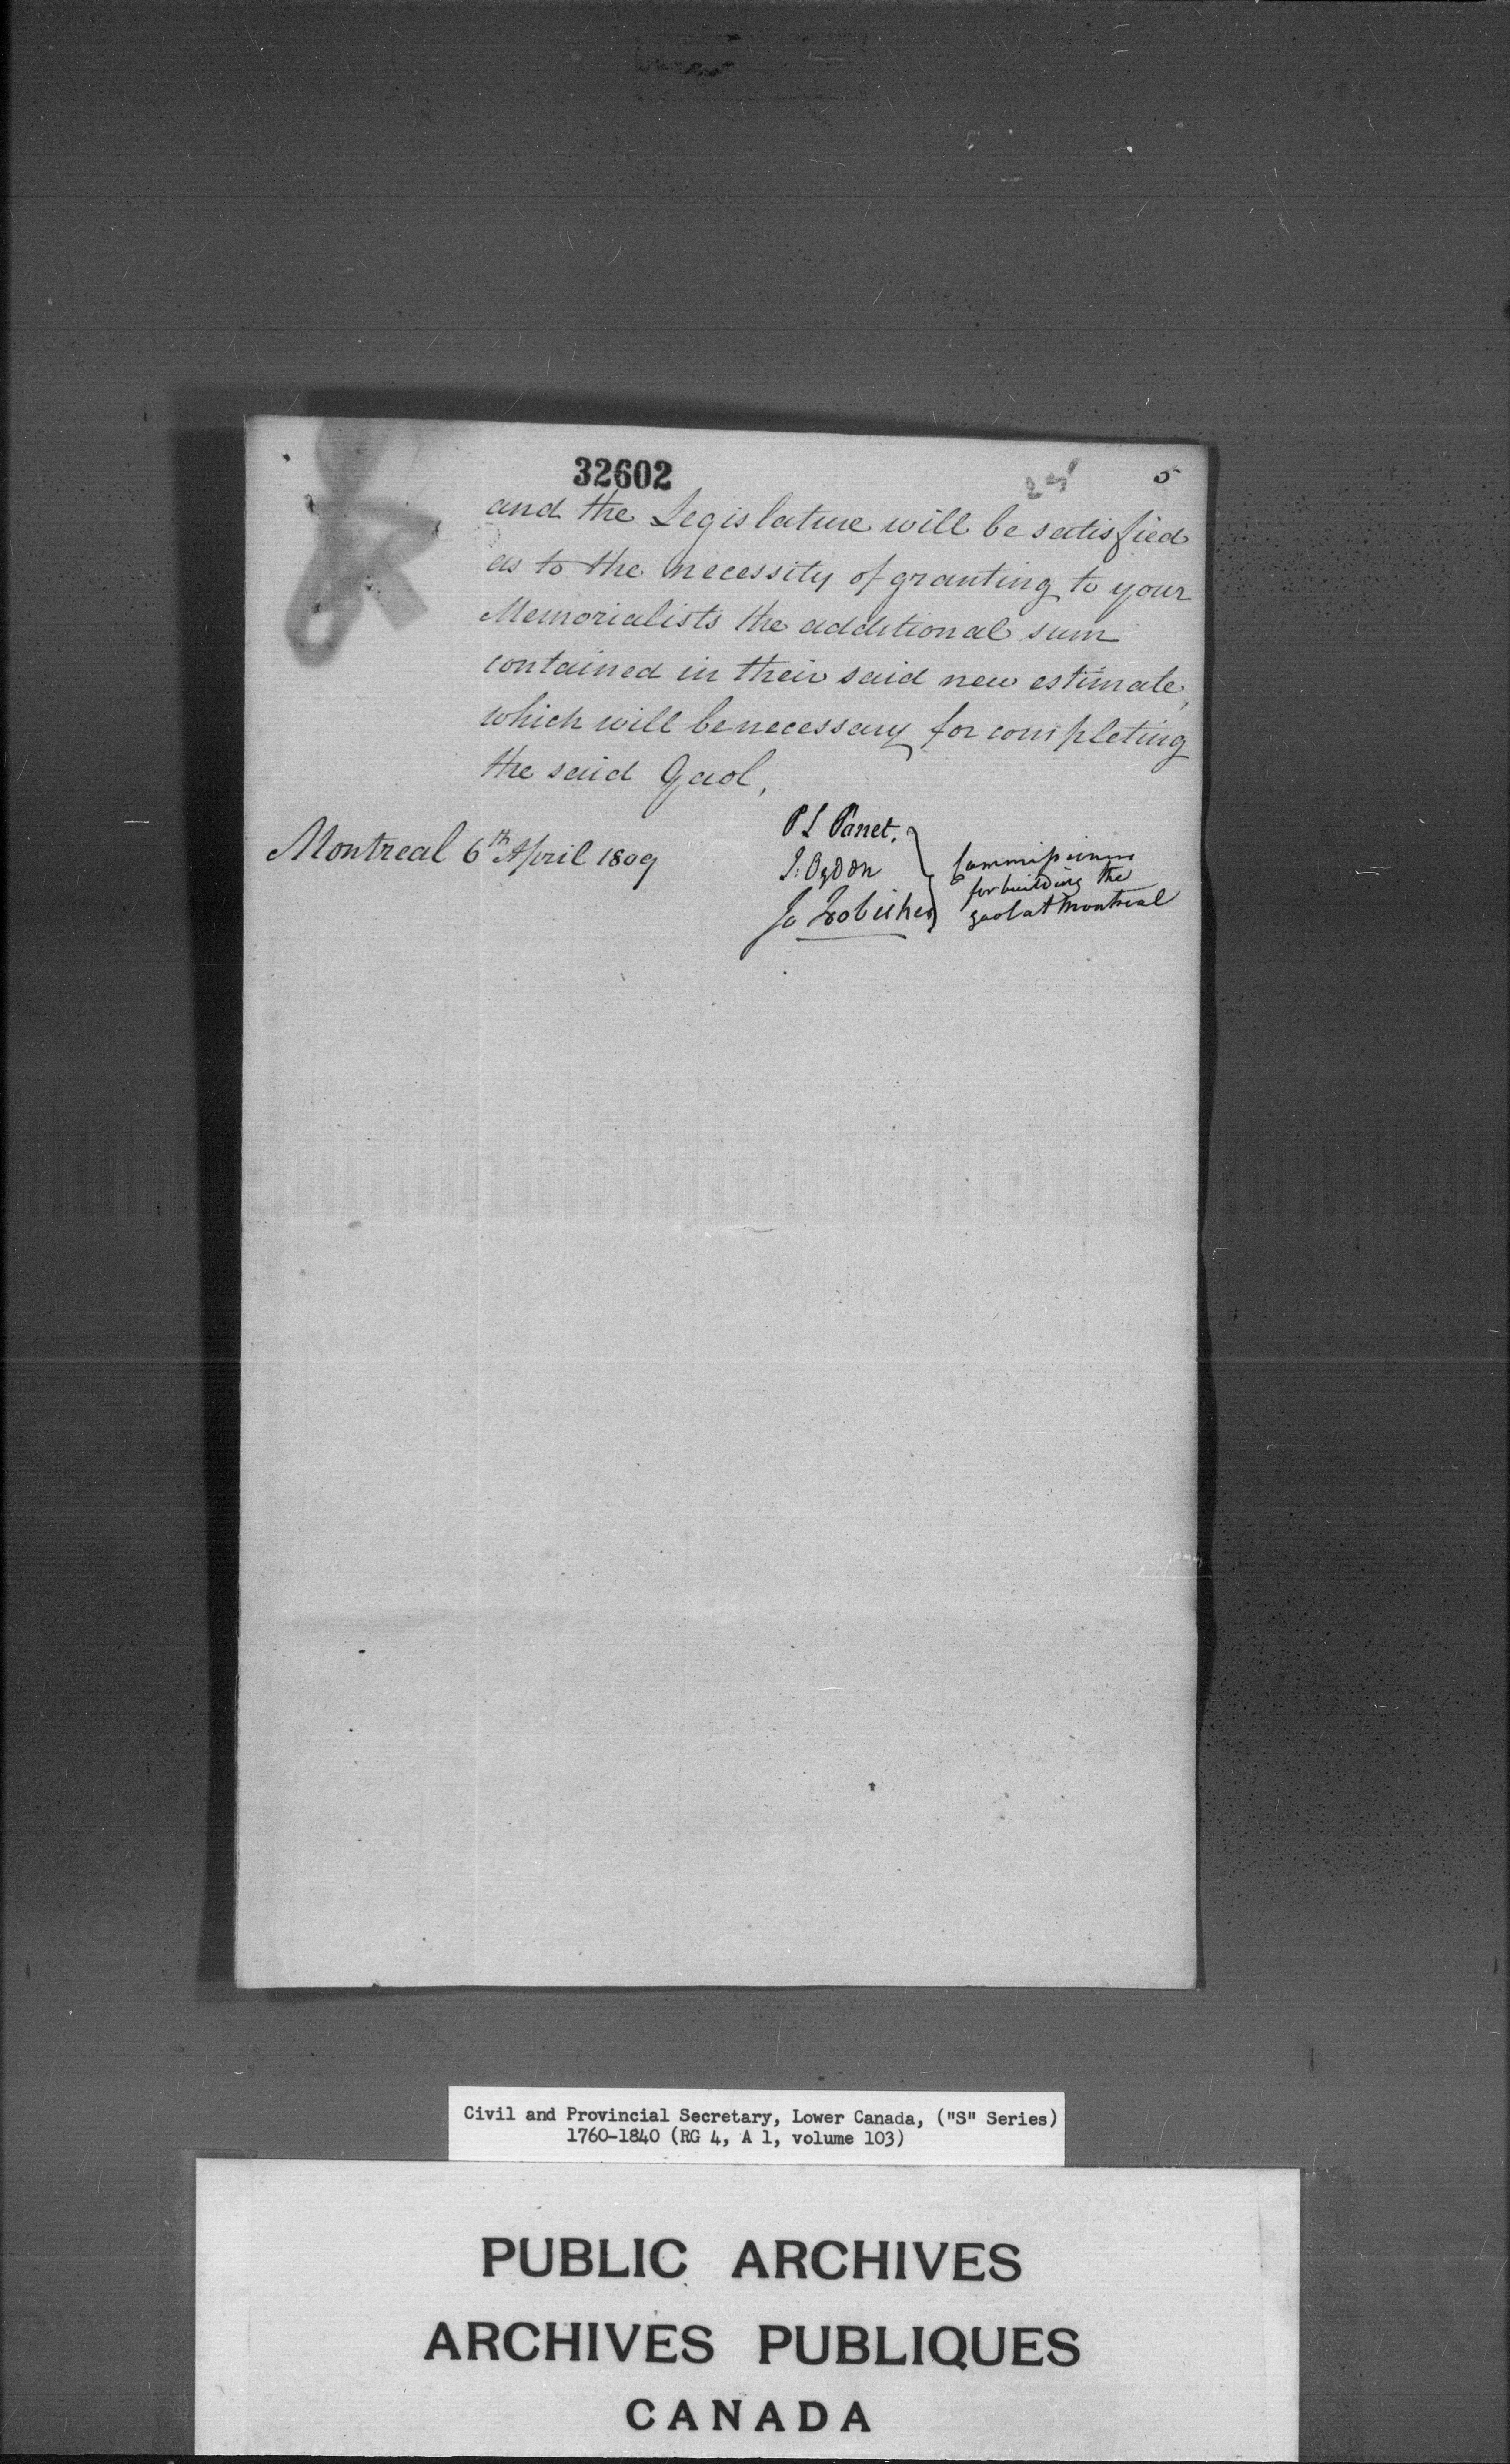 32602
5
and the Legislature will be satisfied
as to the necessity of granting to your
Memorialists the additional sum
contained in their said new estimate,
which will be necessary for completing
the said Gaol,
Montreal 6th April 1809
P L Panet.
I: Ogden
Jo Frobisher
Commissioners
for building the
gaol at Montreal
Civil and Provincial Secretary, Lower Canada, ("S" Series)
1760-1840 (RG 4, A 1, volume 103)
PUBLIC ARCHIVES
ARCHIVES PUBLIQUES
CANADA